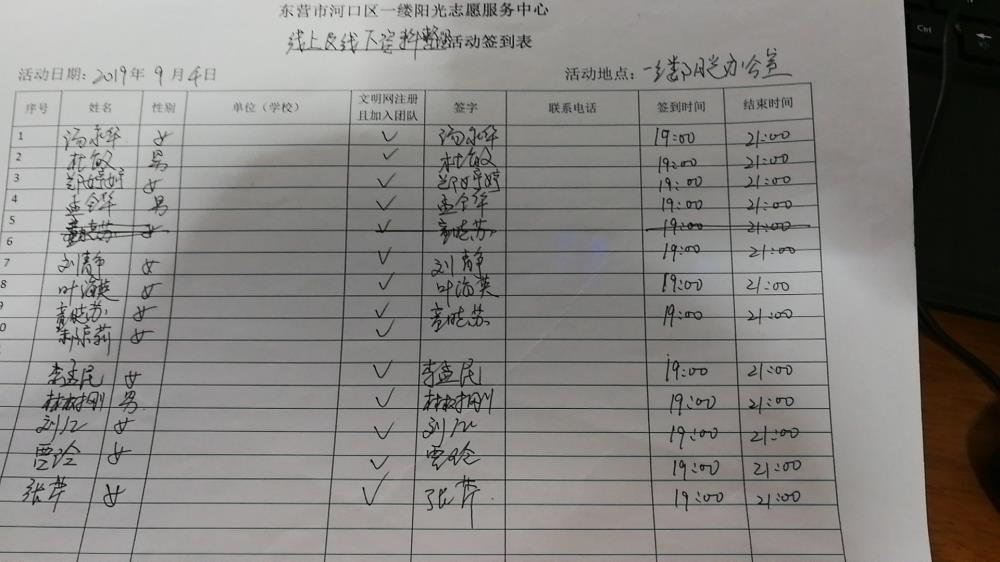 东营市河口区一缕阳光志愿服务中心
线上及线下资料整理活动签到表
活动日期：2019年9月4日 活动地点：一缕阳光办公室
序号 姓名 性别 单位（学校） 文明网注册且加入团队 签字 联系电话 签到时间 结束时间
1 汤永华 女 ✓ 汤永华 19:00 21:00
2 杜敏 男 ✓ 杜敏 19:00 21:00
3 郑婷婷 女 ✓ 郑婷婷 19:00 21:00
4 孟令华 男 ✓ 孟令华 19:00 21:00
5 童晓苏 女 ✓ 童晓苏 19:00 21:00
6 刘静 女 ✓ 刘静 19:00 21:00
7 叶海英 女 ✓ 叶海英 19:00 21:00
8 童晓苏 女 ✓ 童晓苏 19:00 21:00
9 莉 女 ✓
0 李孟民 女 ✓ 李孟民 19:00 21:00
林树刚 男 ✓ 林树刚 19:00 21:00
刘 女 ✓ 刘 19:00 21:00
贾玲 女 ✓ 贾玲 19:00 21:00
张芹 女 ✓ 张芹 19:00 21:00